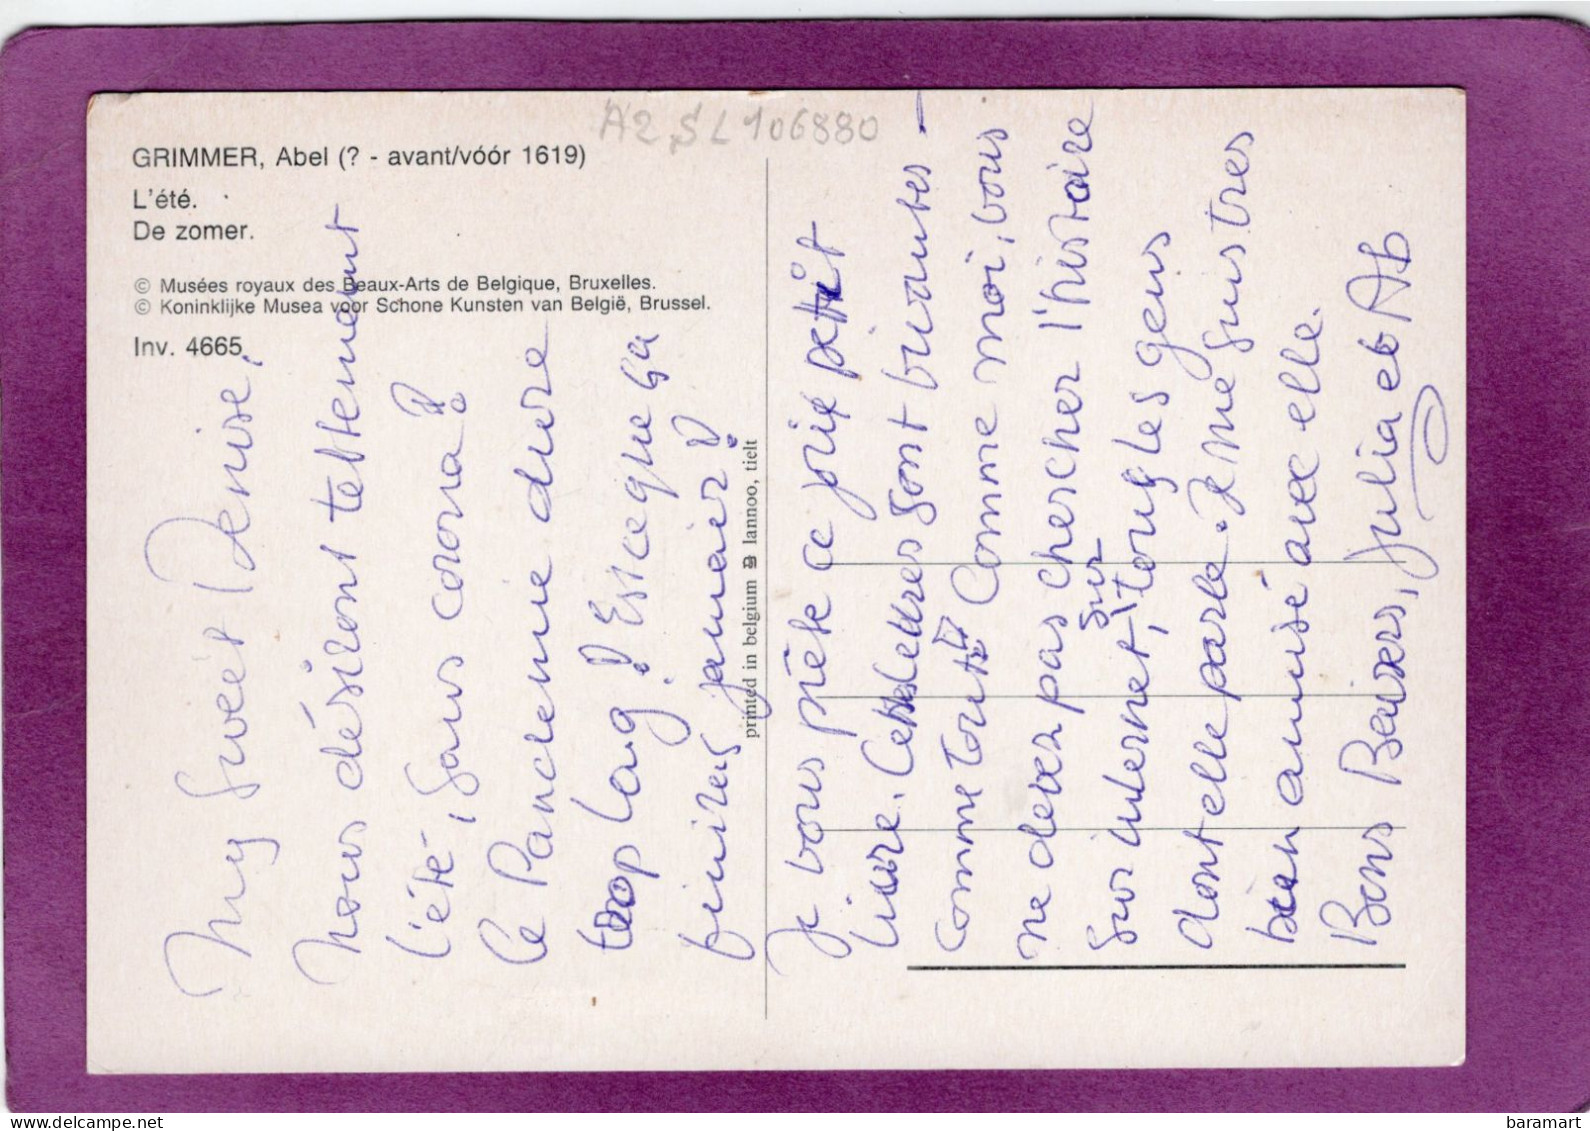 A2 SL 106880
GRIMMER, Abel (? - avant/vóór 1619)
L'été.
De zomer.
© Musées royaux des Beaux-Arts de Belgique, Bruxelles.
© Koninklijke Musea voor Schone Kunsten van België, Brussel.
Inv. 4665
printed in belgium lannoo, tielt
My Sweet Denise,
Nous désirons tellement
l'été, Sans corona?
Ce Pandemie dure
trop long! Esseque ça
finiras jamais?
Je vous prête ce joli petit
livre. Ces lettres sont bruantes -
comme toute Comme moi, vous
ne devez pas chercher l'histoire
sur internet, sur tous les gens
dont elle parle. Je me suis tres
bien amusé avec elle.
Bons Baisers, Julia et Ab
delcampe.net
baramart